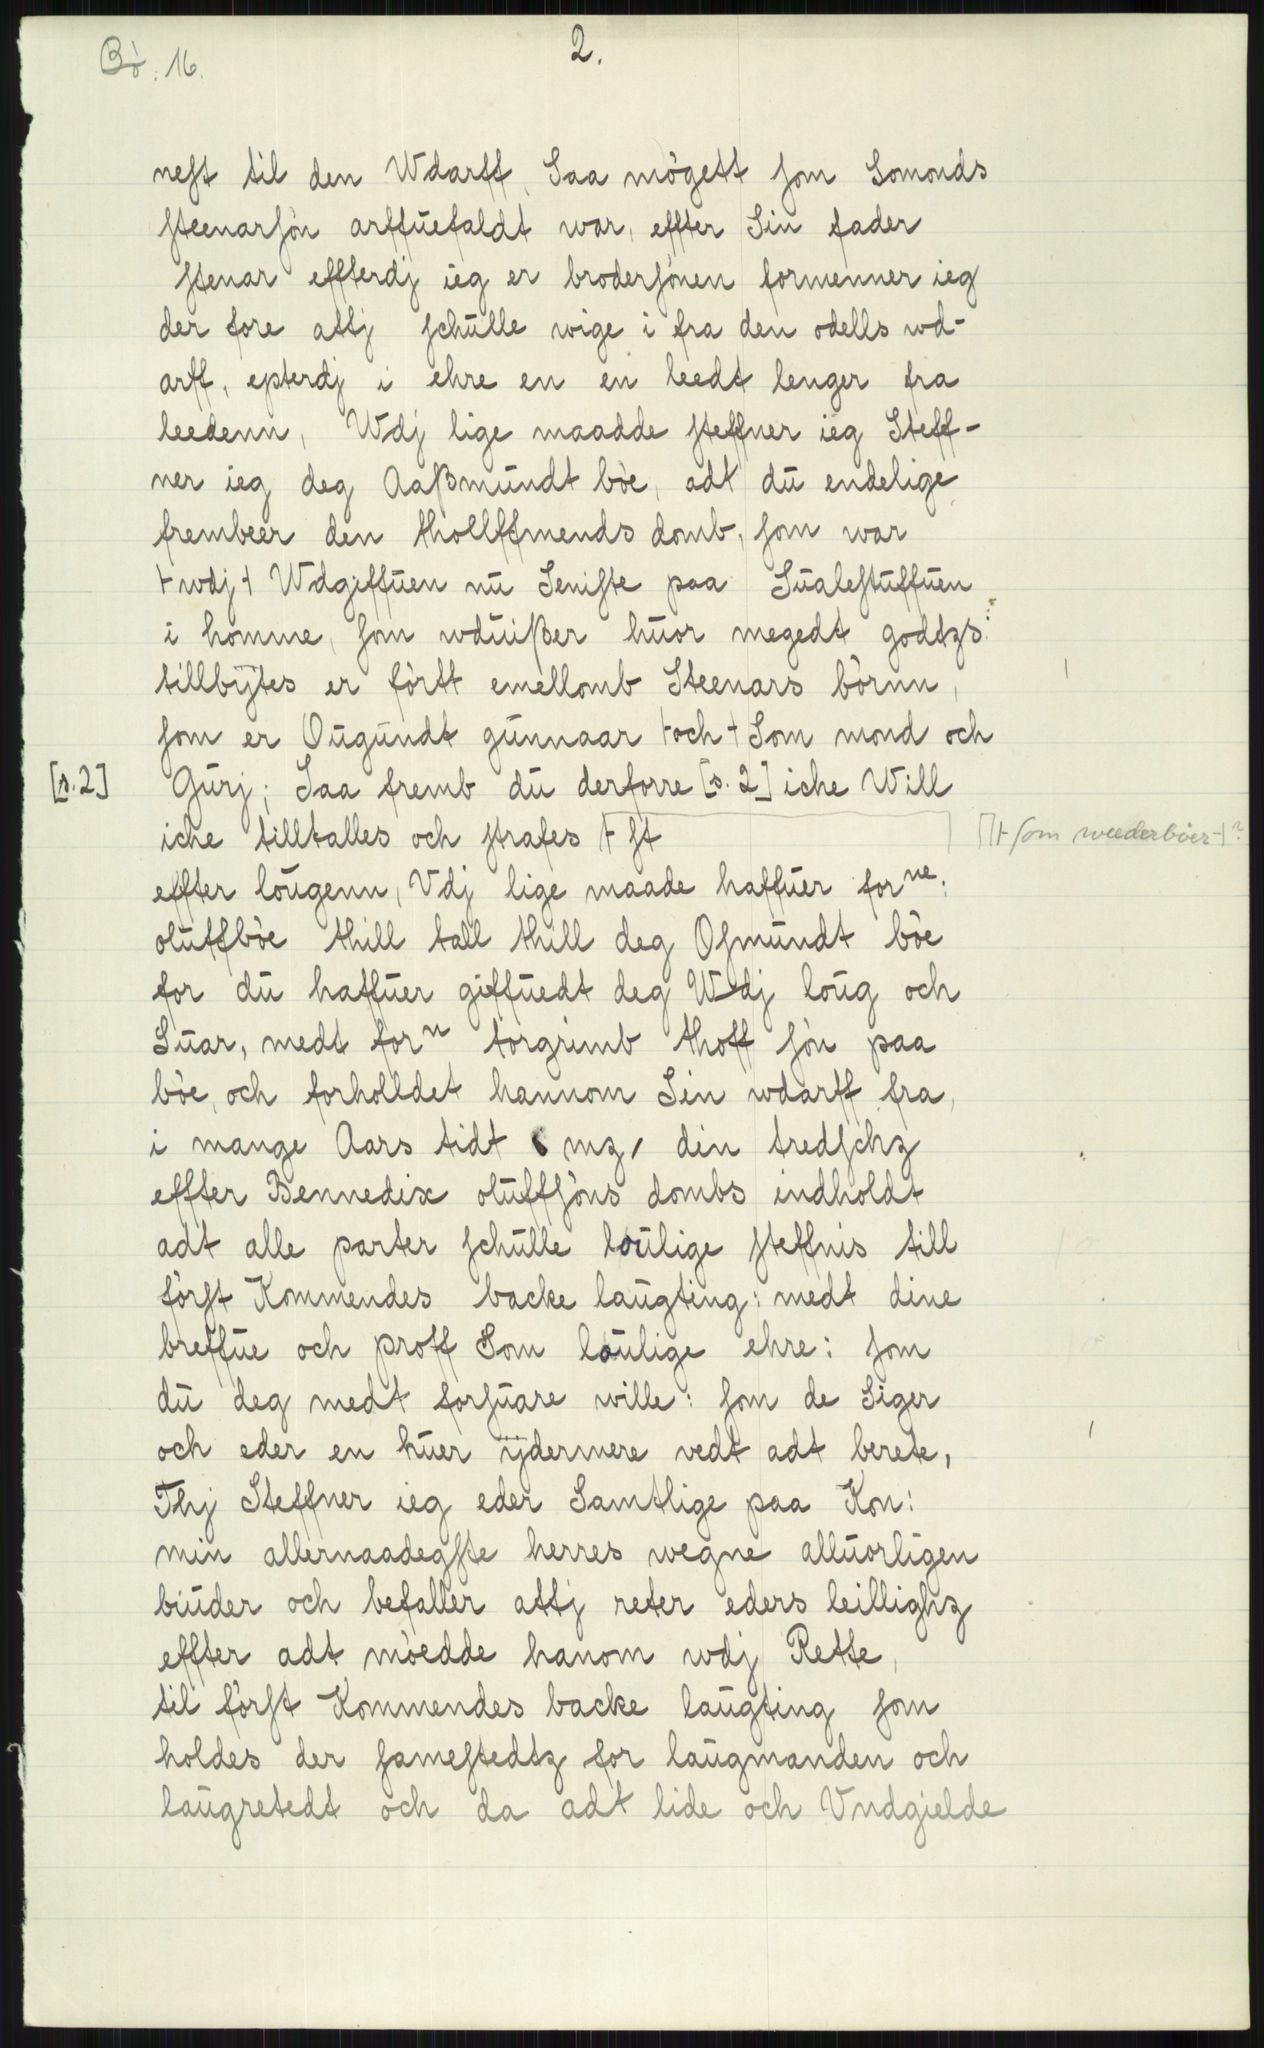 Bö. 16.
2.
nest til den Wdarff, Saa mögett som Somonds
steenarsön arffuefaldt war, effter Sin fader
stenar effterdj ieg er brodersönen formenner ieg
der fore attj schulle wige i fra den odells wd-
arff, epterdj i ehre en en leedt lenger fra
leedenn, Wdj lige maadde steffner ieg Steff-
ner ieg deg Aaßmundt böe, adt du endelige
frembeer den thollffmends domb, som war
+ wdj + Wdgiffuen nu Seniste paa Sualestuffuen
i homme, som wduißer huor megedt godtzs
tillbÿtes er förtt emellomb Steenars börnn,
som er Ougundt gunnaar + och + Som mond och
[s. 2] Gurj; Saa fremb du derforre [s. 2] iche Will
iche tilltalles och strafes + st + som weederböer + ?
effter lougenn, Vdj lige maade haffuer forne:
oluffböe thill tall thill deg Osmundt böe
for du haffuer giffuedt deg Wdj loug och
Suar, medt forn torgrimb thoff sön paa
böe, och forholldet hannom Sin wdarff fra,
i mange Aars tidt mz, din tredschz
effter Bennedix oluffsöns dombs indholdt
adt alle parter schulle loulige steffnis till
först Kommendes backe laugting: medt dine
breffue och proff Som loulige ehre: som
du deg medt forsuare wille: som de Siger
och eder en huer ÿdermere vedt adt berete,
Thj Steffner ieg eder Samtlige paa Kon:
min allernaadegste herres wegne alluorligen
biuder och befaller attj reter eders leillighz
effter adt möedde hanom wdj Rette,
til först Kommendes backe laugting som
holdes der samestedtz for laugmanden och
laugretedt och da adt lide och Vndgielde